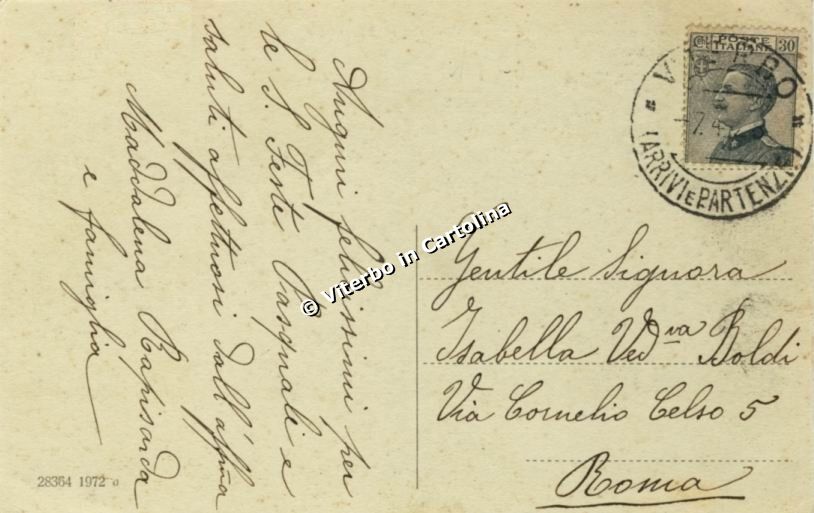 Auguri felicissimi per
le S. Feste Pasquali e
saluti affettuosi dall'affma
Maddalena Rapisarda
e famiglia
POSTE
ITALIANE 30
VITERBO
-7.4
(ARRIVI E PARTENZE)
Gentile Signora
Isabella Ved.va Boldi
Via Cornelio Celso 5
Roma
28364 1972 a
© Viterbo in Cartolina